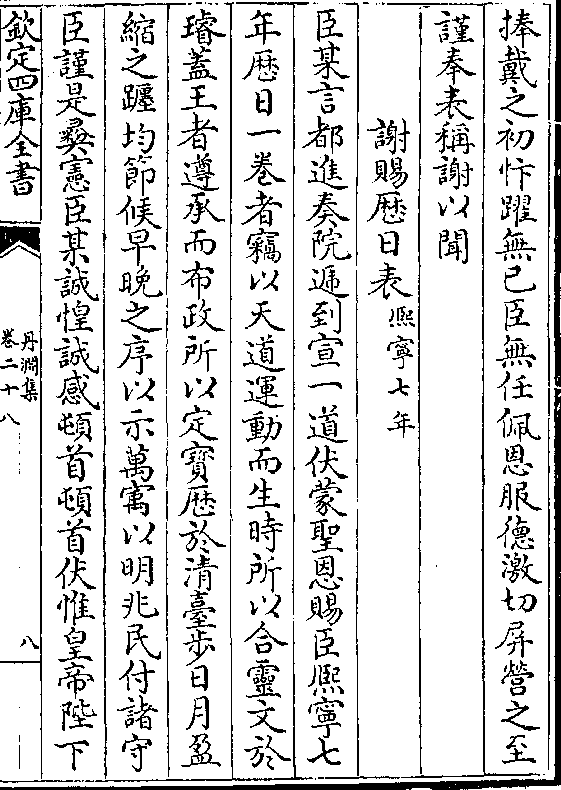 捧戴之初忭躍無已臣無任佩恩服德激切屏營之至
謹奉表稱謝以聞
謝賜歴日表熈寧七年
臣某言都進奏院遞到宣一道伏蒙聖恩賜臣熈寧七
年歴日一巻者竊以天道運動而生時所以合靈文於
璿蓋王者遵承而布政所以定寳歴於清臺步日月盈
縮之躔均節候早晚之序以示萬㝢以明兆民付諸守
臣謹是彛憲臣某誠惶誠感頓首頓首伏惟皇帝陛下
欽定四庫全書
丹淵集
巻二十八
八